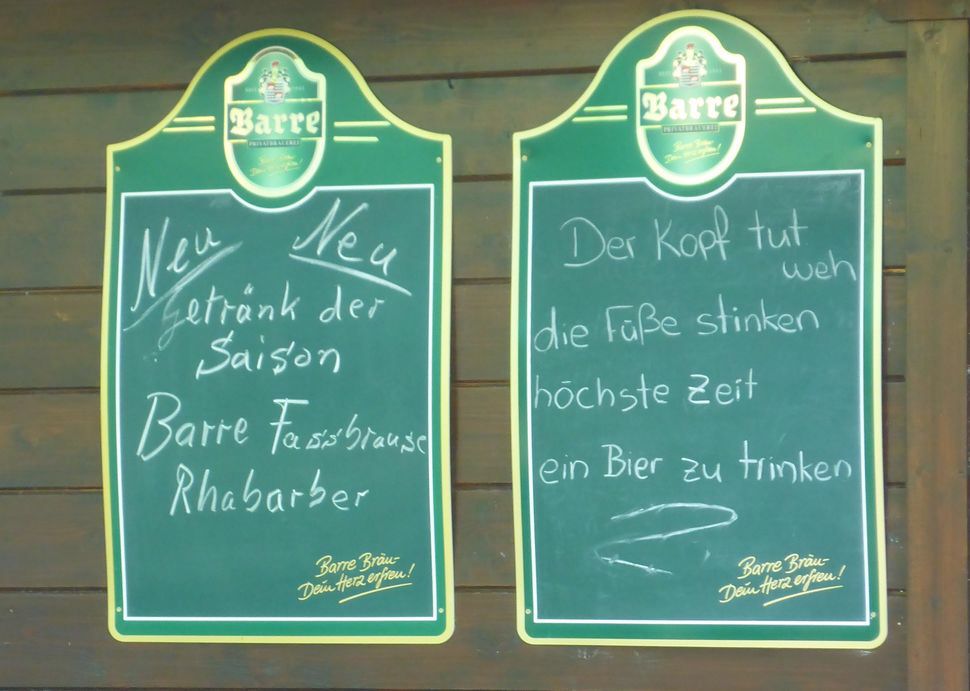 Barre
PRIVATBRAUEREI
Barre Bräu-
Dein Herz erfreu!
Neu Neu
Getränk der
Saison
Barre Fassbrause
Rhabarber
Barre Bräu-
Dein Herz erfreu!
Barre
PRIVATBRAUEREI
Barre Bräu-
Dein Herz erfreu!
Der Kopf tut
weh
die Füße stinken
höchste Zeit
ein Bier zu trinken
Barre Bräu-
Dein Herz erfreu!